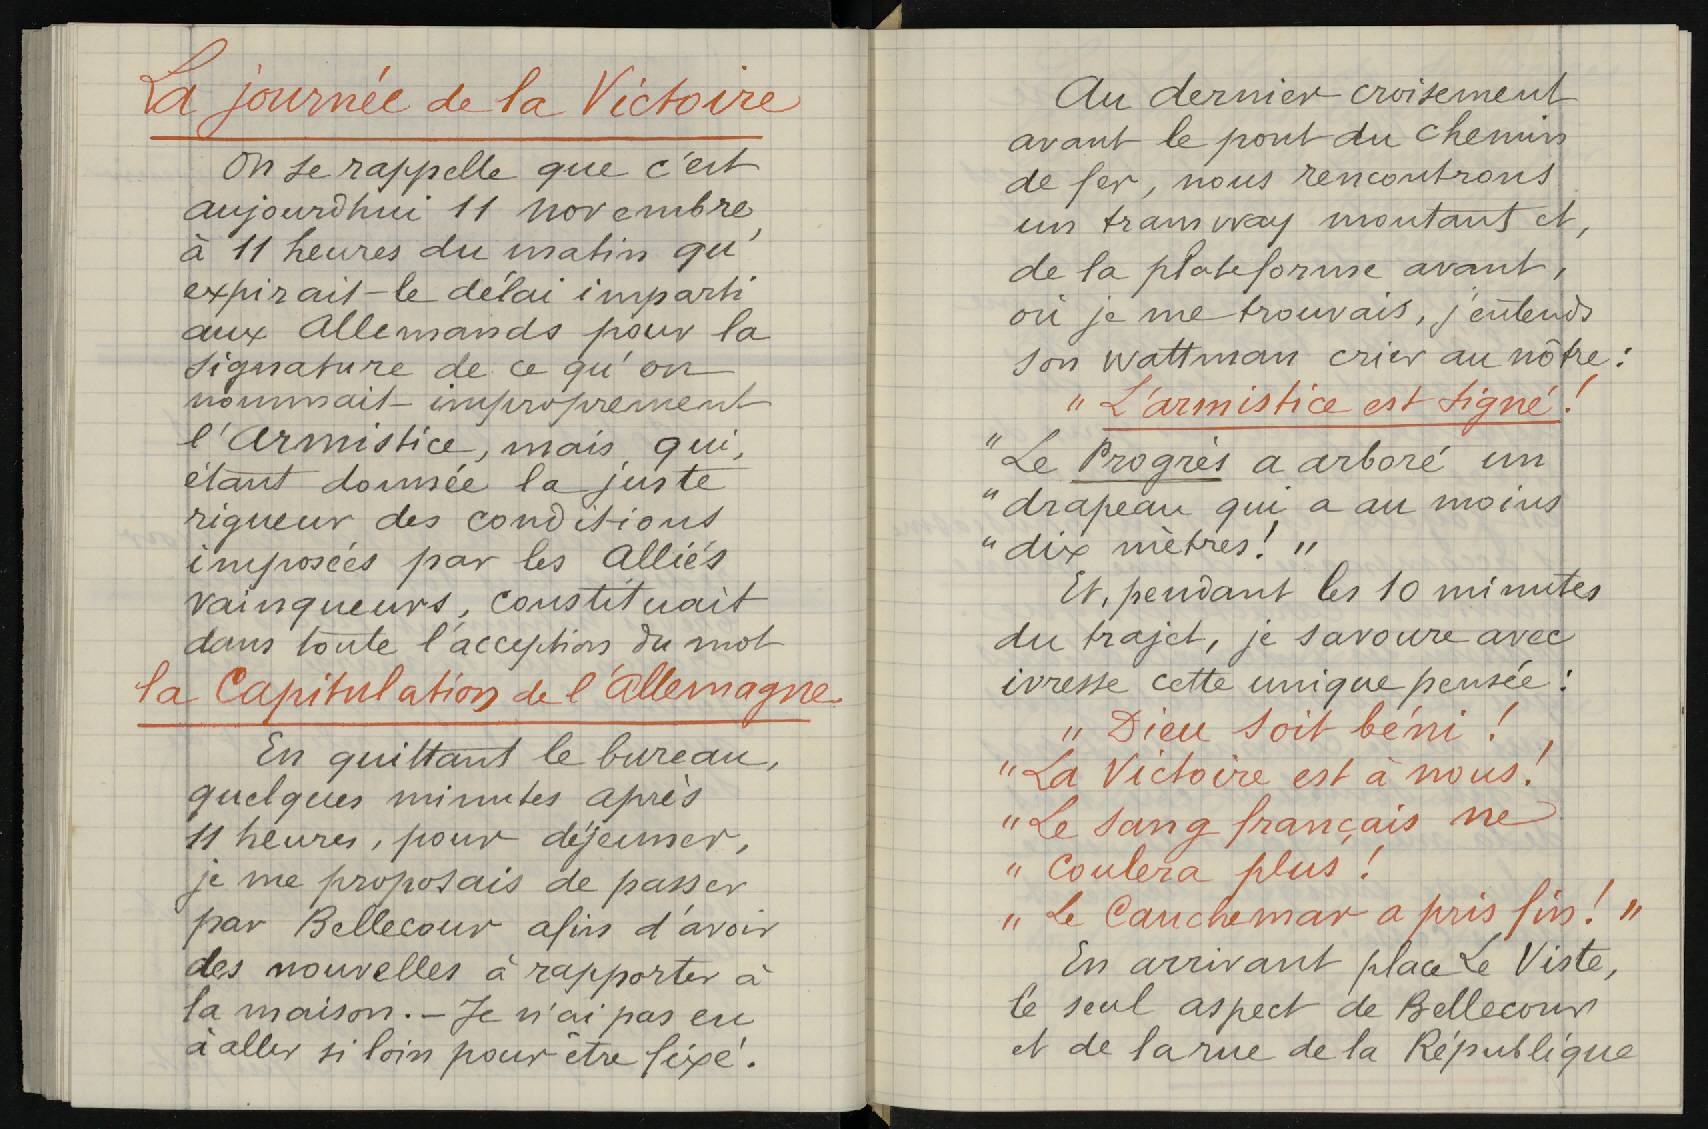 La journée de la Victoire
On se rappelle que c'est
aujourd'hui 11 novembre,
à 11 heures du matin qu'
expirait le délai imparti
aux Allemands pour la
signature de ce qu'on
nommait improprement
l'Armistice, mais qui,
étant donnée la juste
rigueur des conditions
imposées par les Alliés
vainqueurs, constituait
dans toute l'acception du mot
la Capitulation de l'Allemagne.
En quittant le bureau,
quelques minutes après
11 heures, pour déjeuner,
je me proposais de passer
par Bellecour afin d'avoir
des nouvelles à rapporter à
la maison. — Je n'ai pas eu
à aller si loin pour être fixé.
Au dernier croisement
avant le pont du chemin
de fer, nous rencontrons
un tramway montant et,
de la plateforme avant,
où je me trouvais, j'entends
son wattman crier au nôtre :
" L'armistice est signé !
" Le Progrès a arboré un
" drapeau qui a au moins
" dix mètres ! "
Et, pendant les 10 minutes
du trajet, je savoure avec
ivresse cette unique pensée :
" Dieu soit béni !
" La Victoire est à nous !
" Le sang français ne
" coulera plus !
" Le Cauchemar a pris fin ! "
En arrivant place Le Viste,
le seul aspect de Bellecour
et de la rue de la République